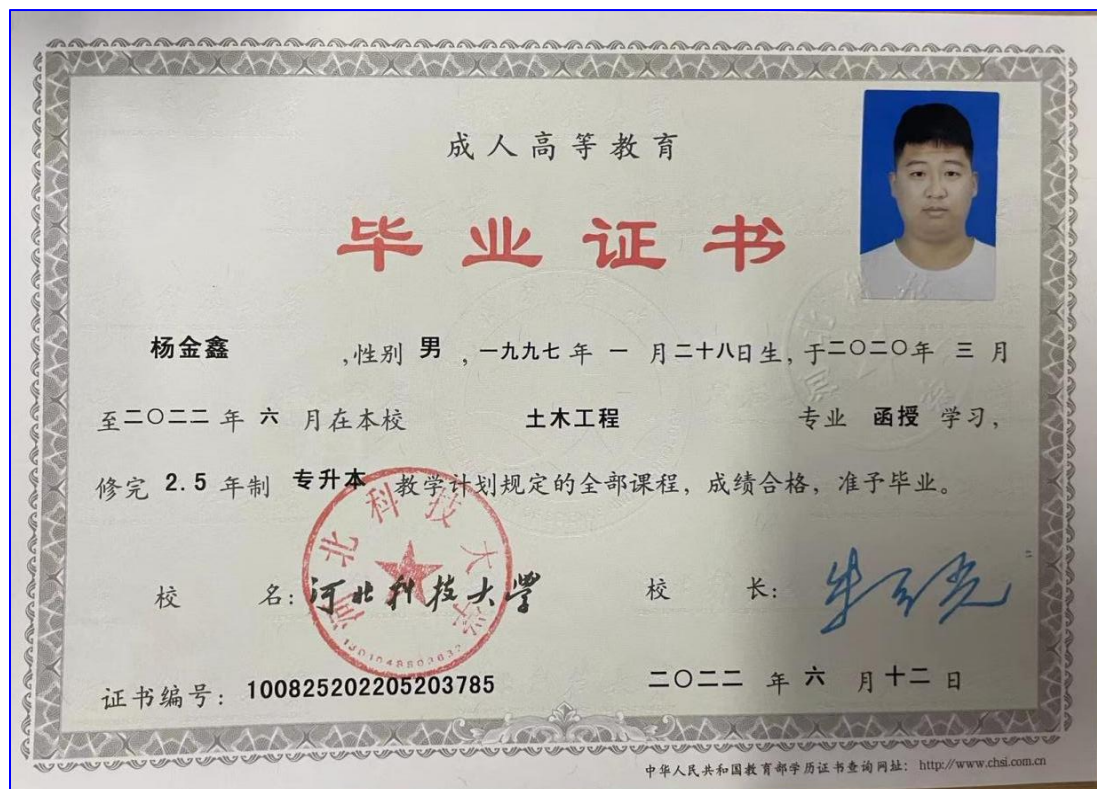 成人高等教育
毕业证书
杨金鑫 ,性别 男 ,一九九七 年 一 月二十八日生, 于二〇二〇年 三 月
至二〇二二 年 六 月在本校 土木工程 专业 函授 学习,
修完 2.5 年制 专升本 教学计划规定的全部课程, 成绩合格, 准予毕业。
校 名: 河北科技大学 校 长:
河北科技大学
证书编号: 100825202205203785 二〇二二 年 六 月 十二 日
中华人民共和国教育部学历证书查询网址: http://www.chsi.com.cn